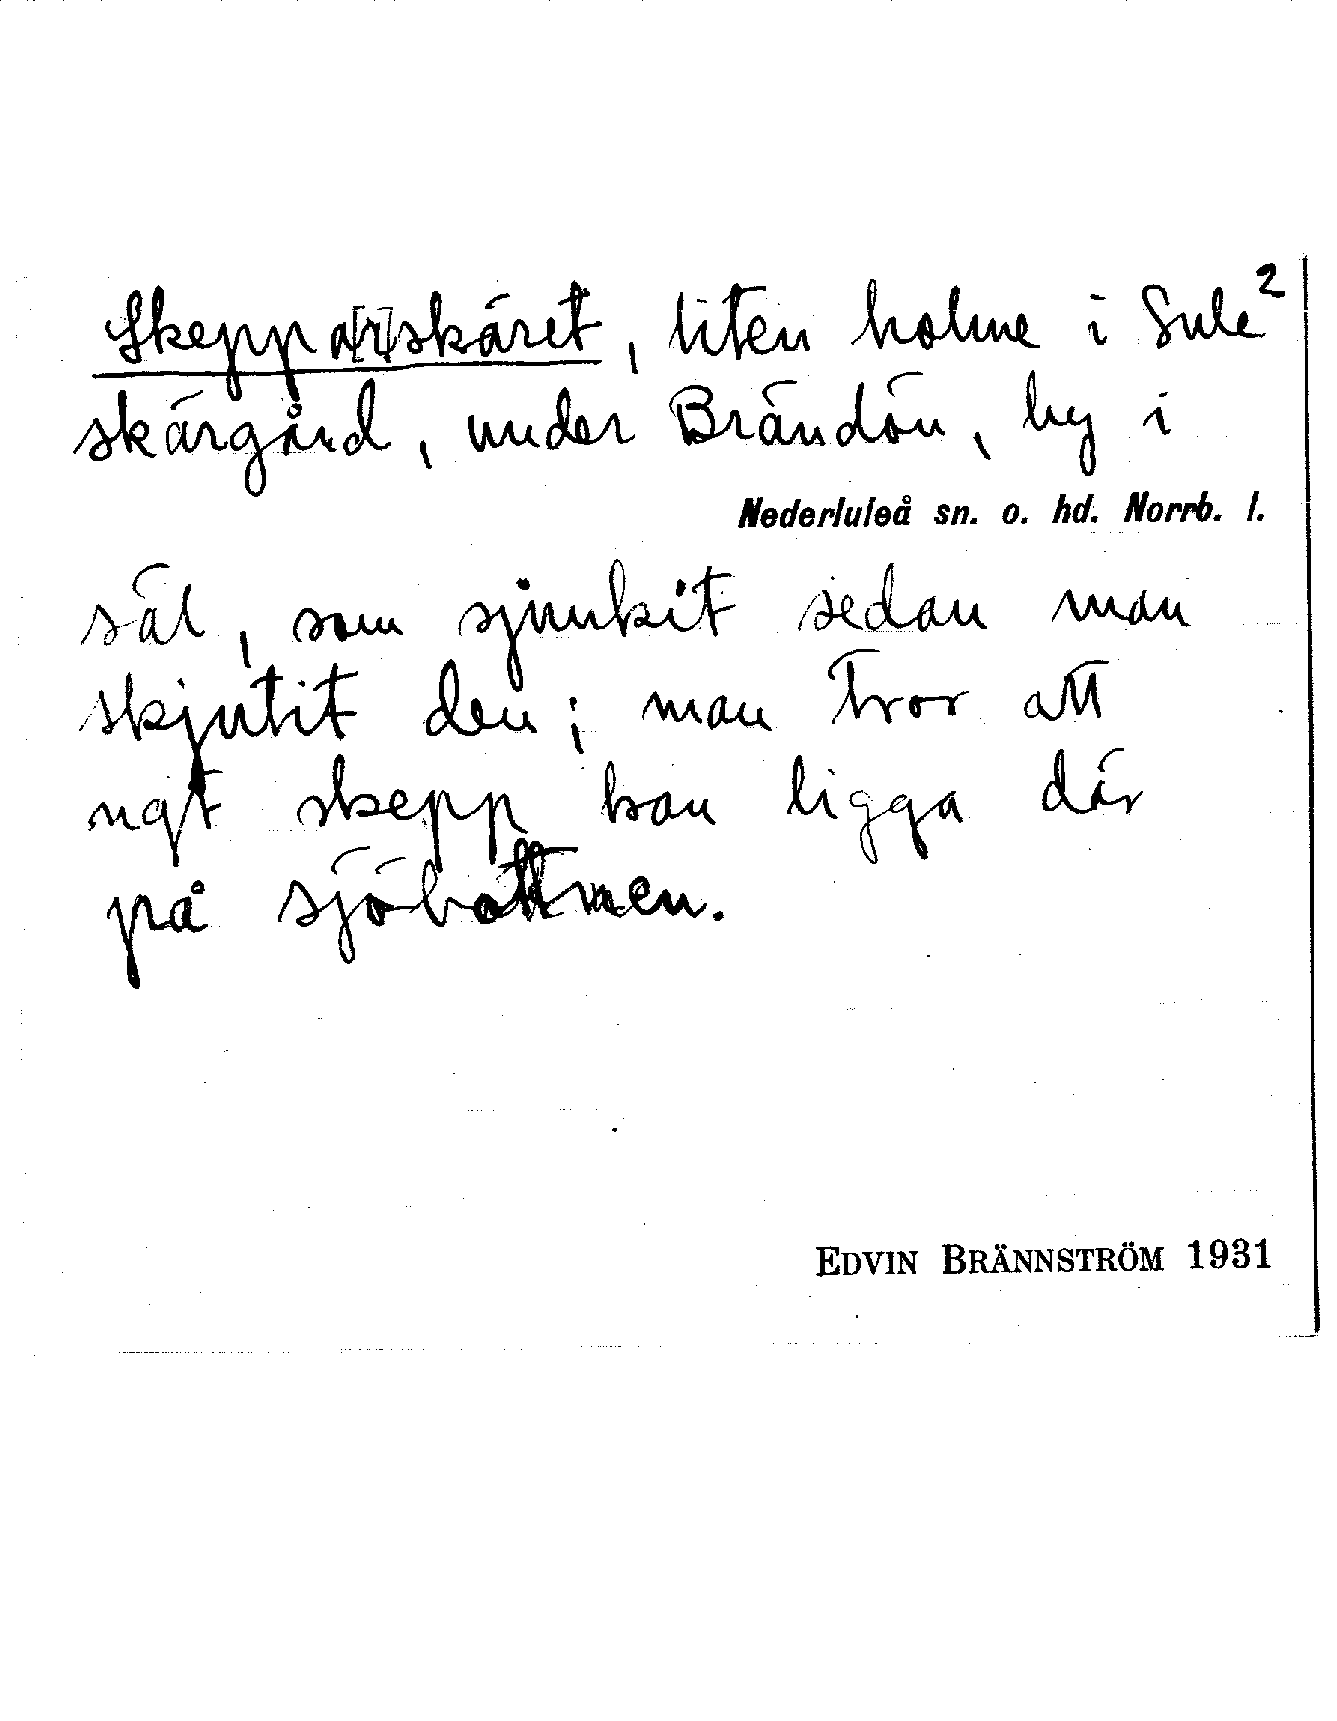 Skeppa[r]skäret, liten holme i Lule 2
skärgård, under Brändön, by i
Nederluleå sn. o. hd. Norrb. l.
säl, som sjunkit sedan man
skjutit den; man tror att
ngt skepp kan ligga där
på sjöbottnen.
EDVIN BRÄNNSTRÖM 1931